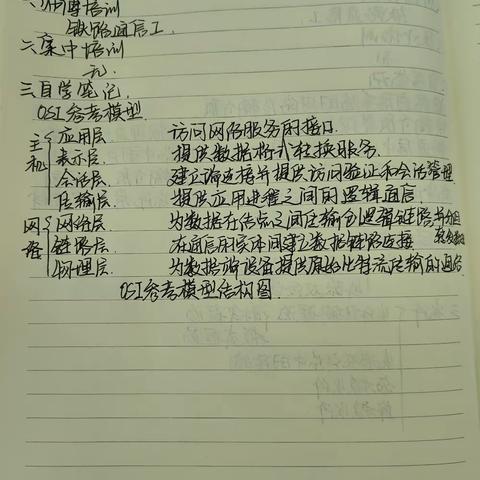 培训
铁路通信工.
二.集中培训
无.
三.自学笔记.
OSI参考模型.
主机 应用层 访问网络服务的接口.
表示层. 提供数据格式转换服务.
会话层 建立端连接并提供访问验证和会话管理
传输层. 提供应用进程之间的逻辑通信.
网络 网络层. 为数据在结点之间传输创建逻辑链路,并分组转发数据
链路层. 在通信的实体间建立数据链路连接
物理层. 为数据端设备提供原始比特流传输的通路
OSI参考模型结构图.